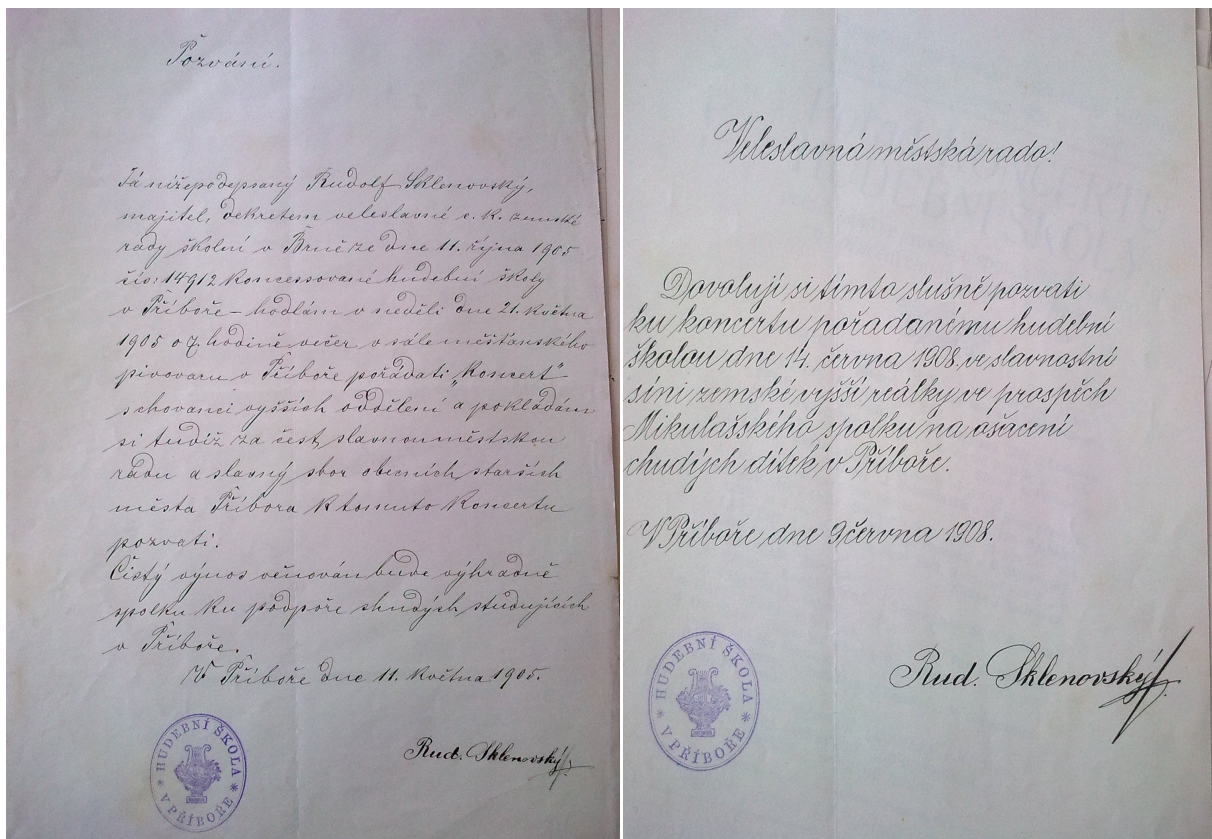 Pozvání.
Já nížepodepsaný Rudolf Sklenovský,
majitel, dekretem veleslavné c. k. zemské
rady školní v Brně ze dne 11. října 1905
čís: 14912 koncessované hudební školy
v Příboře – hodlám v neděli dne 21. května
1905 o 7. hodině večer v sále měšťanského
pivovaru v Příboře pořádati „Koncert"
s chovanci vyšších oddělení a pokládám
si tudíž za čest, slavnou městskou
radu a slavný sbor obecních starších
města Příbora k tomuto koncertu
pozvati.
Čistý výnos věnován bude výhradně
spolku ku podpoře chudých studujících
v Příboře.
V Příboře dne 11. května 1905.
Rud. Sklenovský
HUDEBNÍ ŠKOLA
V PŘÍBOŘE
Veleslavná městská rado!
Dovoluji si tímto slušně pozvati
ku koncertu pořadanému hudební
školou dne 14. června 1908. ve slavnostní
síni zemské vyšší reálky ve prospěch
Mikulašského spolku na ošacení
chudých dítek v Příboře.
V Příboře dne 9 června 1908.
Rud. Sklenovský
HUDEBNÍ ŠKOLA
V PŘÍBOŘE